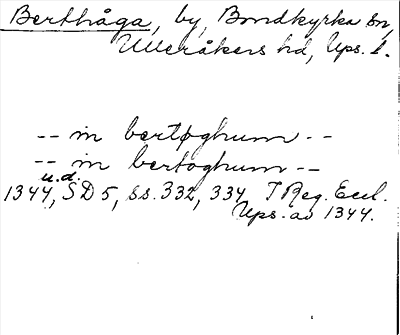 Berthåga, by, Bondkyrka sn,
Ulleråkers hd, Ups. l.
-- in bertøghum --
-- in bertoghum --
u.d.
1344, SD 5, ss. 332, 334 T Reg. Eccl.
Ups. av 1344.